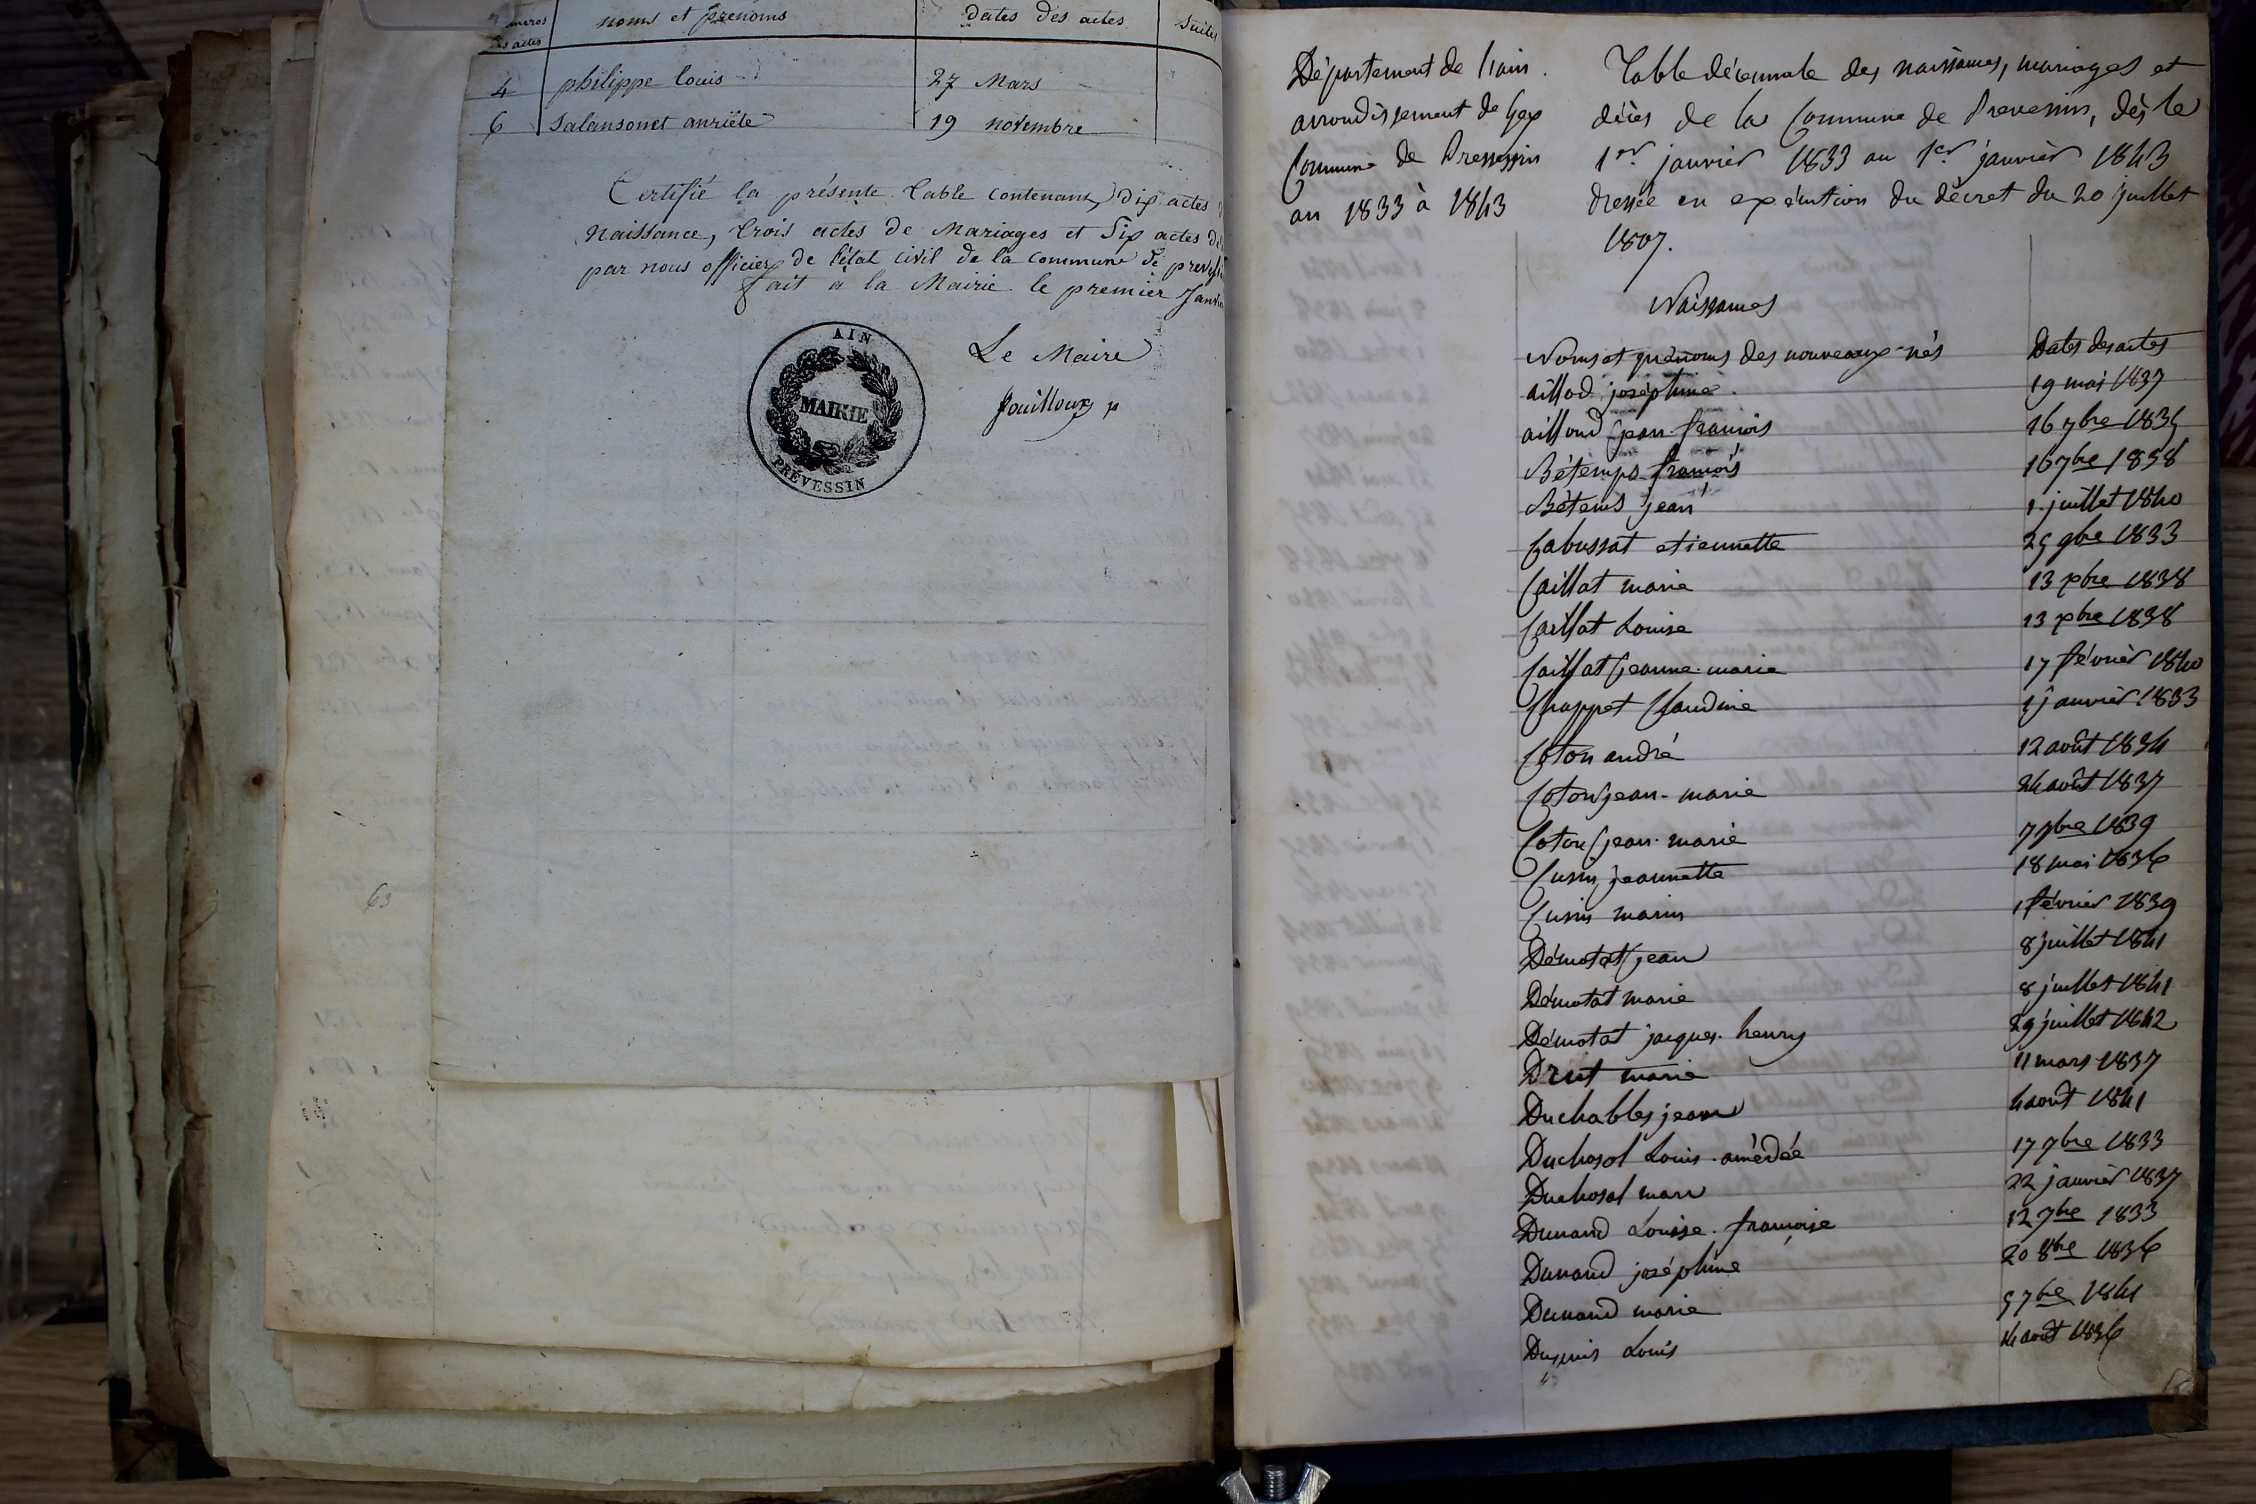 noms et prenoms
dates des actes
4 philippe louis 27 Mars
6 Salansonet anriéte 19 novembre
Certifié la présente Table contenant dix actes
naissance, trois actes de Mariages et Six actes de
par nous officier de l'état civil de la commune de
fait a la Mairie le premier
AIN
MAIRIE
PRÉVESSIN
Le Maire
fouilloux
63
Département de l'ain.
arrondissement de Gex
Commune de
an 1833 à 1843
Table décennale des naissances, mariages et
décès de la Commune de Prevessin, dès le
1er janvier 1833 au 1er janvier 1843
dressée en exécution du décret du 20 juillet
1807.
Naissances
Noms et prénoms des nouveaux-nés Dates des actes
aillod joséphine. 19 mai 1837
ailloud jean françois 16 7bre 1835
Bétemps françois 16 7bre 1838
Bétems jean 1 juillet 1840
Cabussat etiennette 25 9bre 1833
Caillat marie 13 xbre 1838
Caillat Louise 13 xbre 1838
Caillat jeanne marie 17 février 1840
Chappet Claudine janvier 1833
Coton andré 12 août 1834
Coton jean-marie 24 août 1837
Coton jean-marie 1839
Cusin jeannette 18 mai 1836
Cusin 1 février 1839
Démotat jean 8 juillet 1841
Démotat marie 8 juillet 1841
Démotat jacques henry 29 juillet 1842
marie 11 mars 1837
Duchables jean 4 août 1841
Duchosal Louis amédée 17 1833
Duchosal marc 22 janvier 1837
Dunand Louise françoise 12 7bre 1833
Dunand joséphine 20 8bre 1836
Dunand marie 5 7bre 1841
Louis août 1836